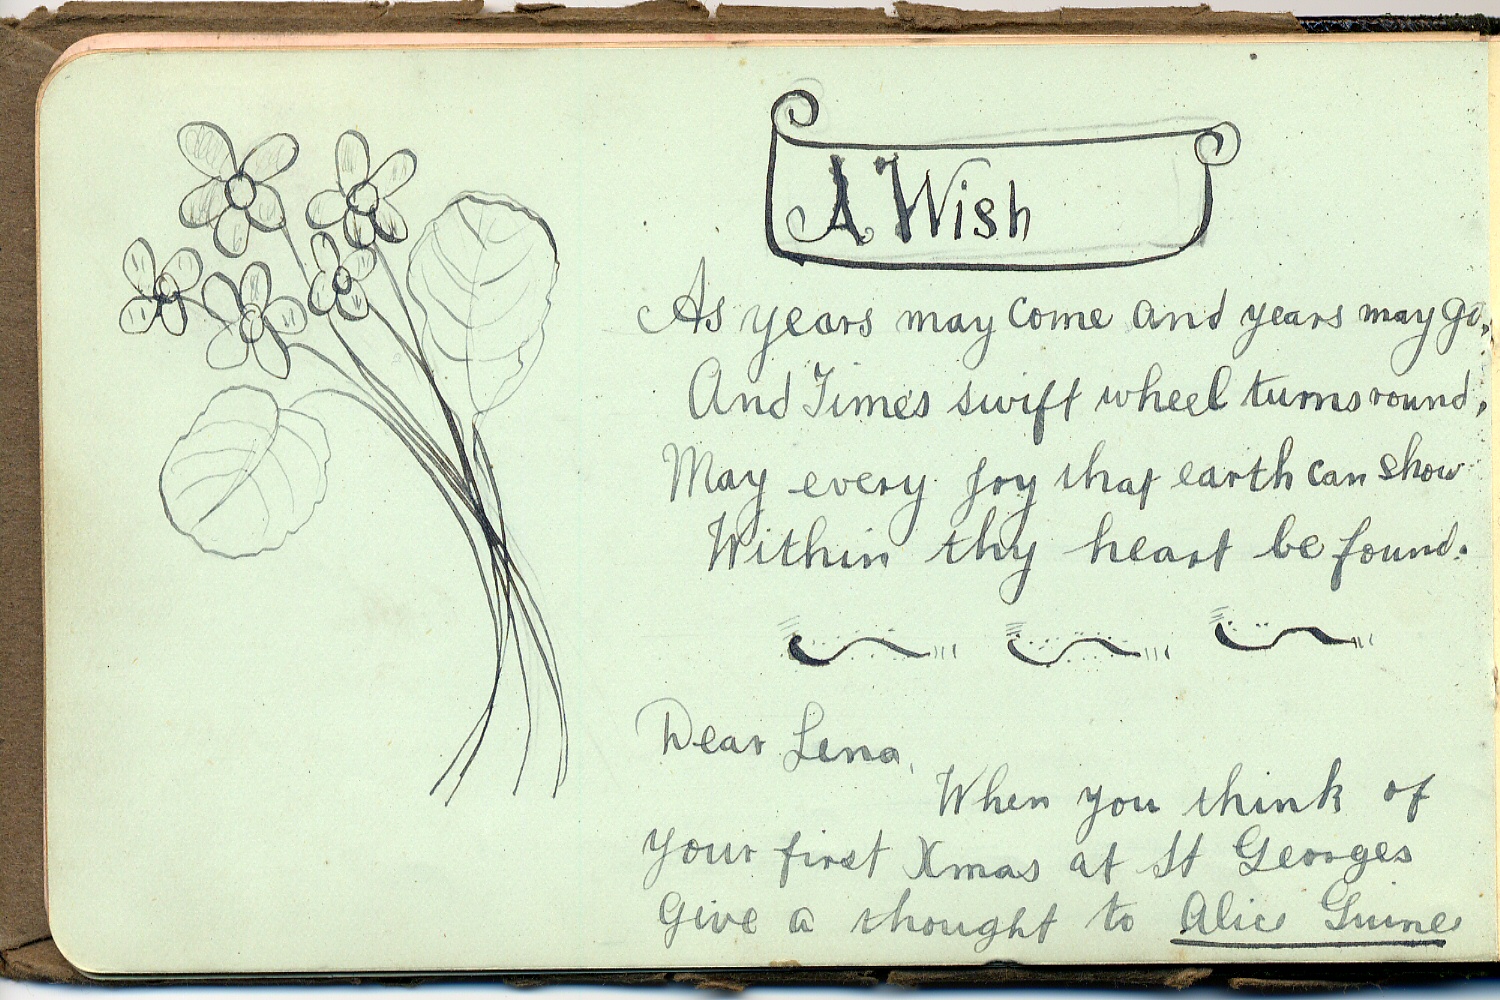 A Wish
As years may come and years may go,
And Time's swift wheel turns round,
May every joy that earth can show
Within thy heart be found.
Dear Lena,
When you think of
your first Xmas at St Georges
Give a thought to Alice